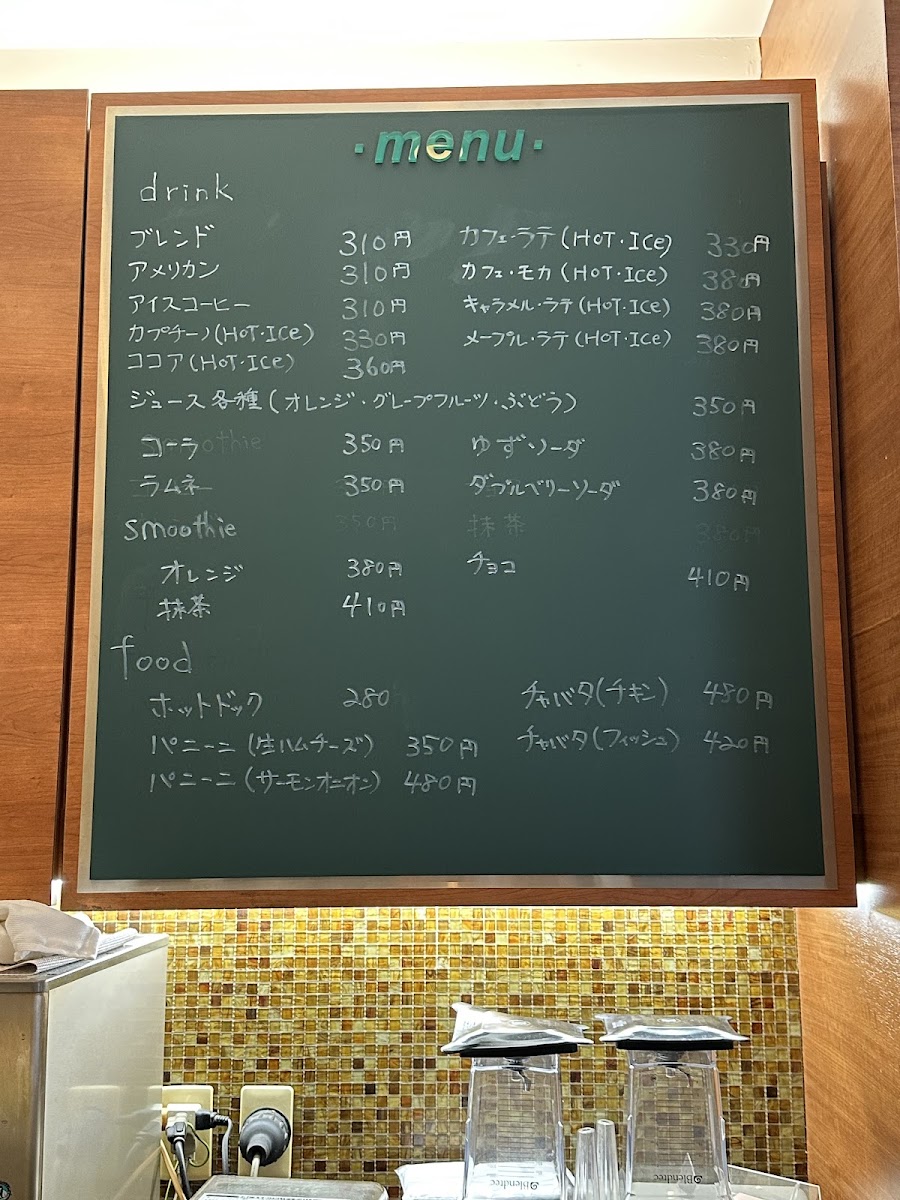 ・menu・
drink
ブレンド 310円 カフェ・ラテ(HOT・ICe) 330円
アメリカン 310円 カフェ・モカ(HOT・ICe) 380円
アイスコーヒー 310円 キャラメル・ラテ(HOT・ICe) 380円
カプチーノ(HOT・ICe) 330円 メープル・ラテ(HOT・ICe) 380円
ココア(HOT・ICe) 360円
ジュース各種(オレンジ・グレープフルーツ・ぶどう) 350円
コーラ 350円 ゆずソーダ 380円
ラムネ 350円 ダブルベリーソーダ 380円
smoothie 350円 抹茶 380円
オレンジ 380円 チョコ 410円
抹茶 410円
food
ホットドック 280 チャバタ(チキン) 480円
パニーニ(生ハムチーズ) 350円 チャバタ(フィッシュ) 420円
パニーニ(サーモンオニオン) 480円
Blendtec Blendtec